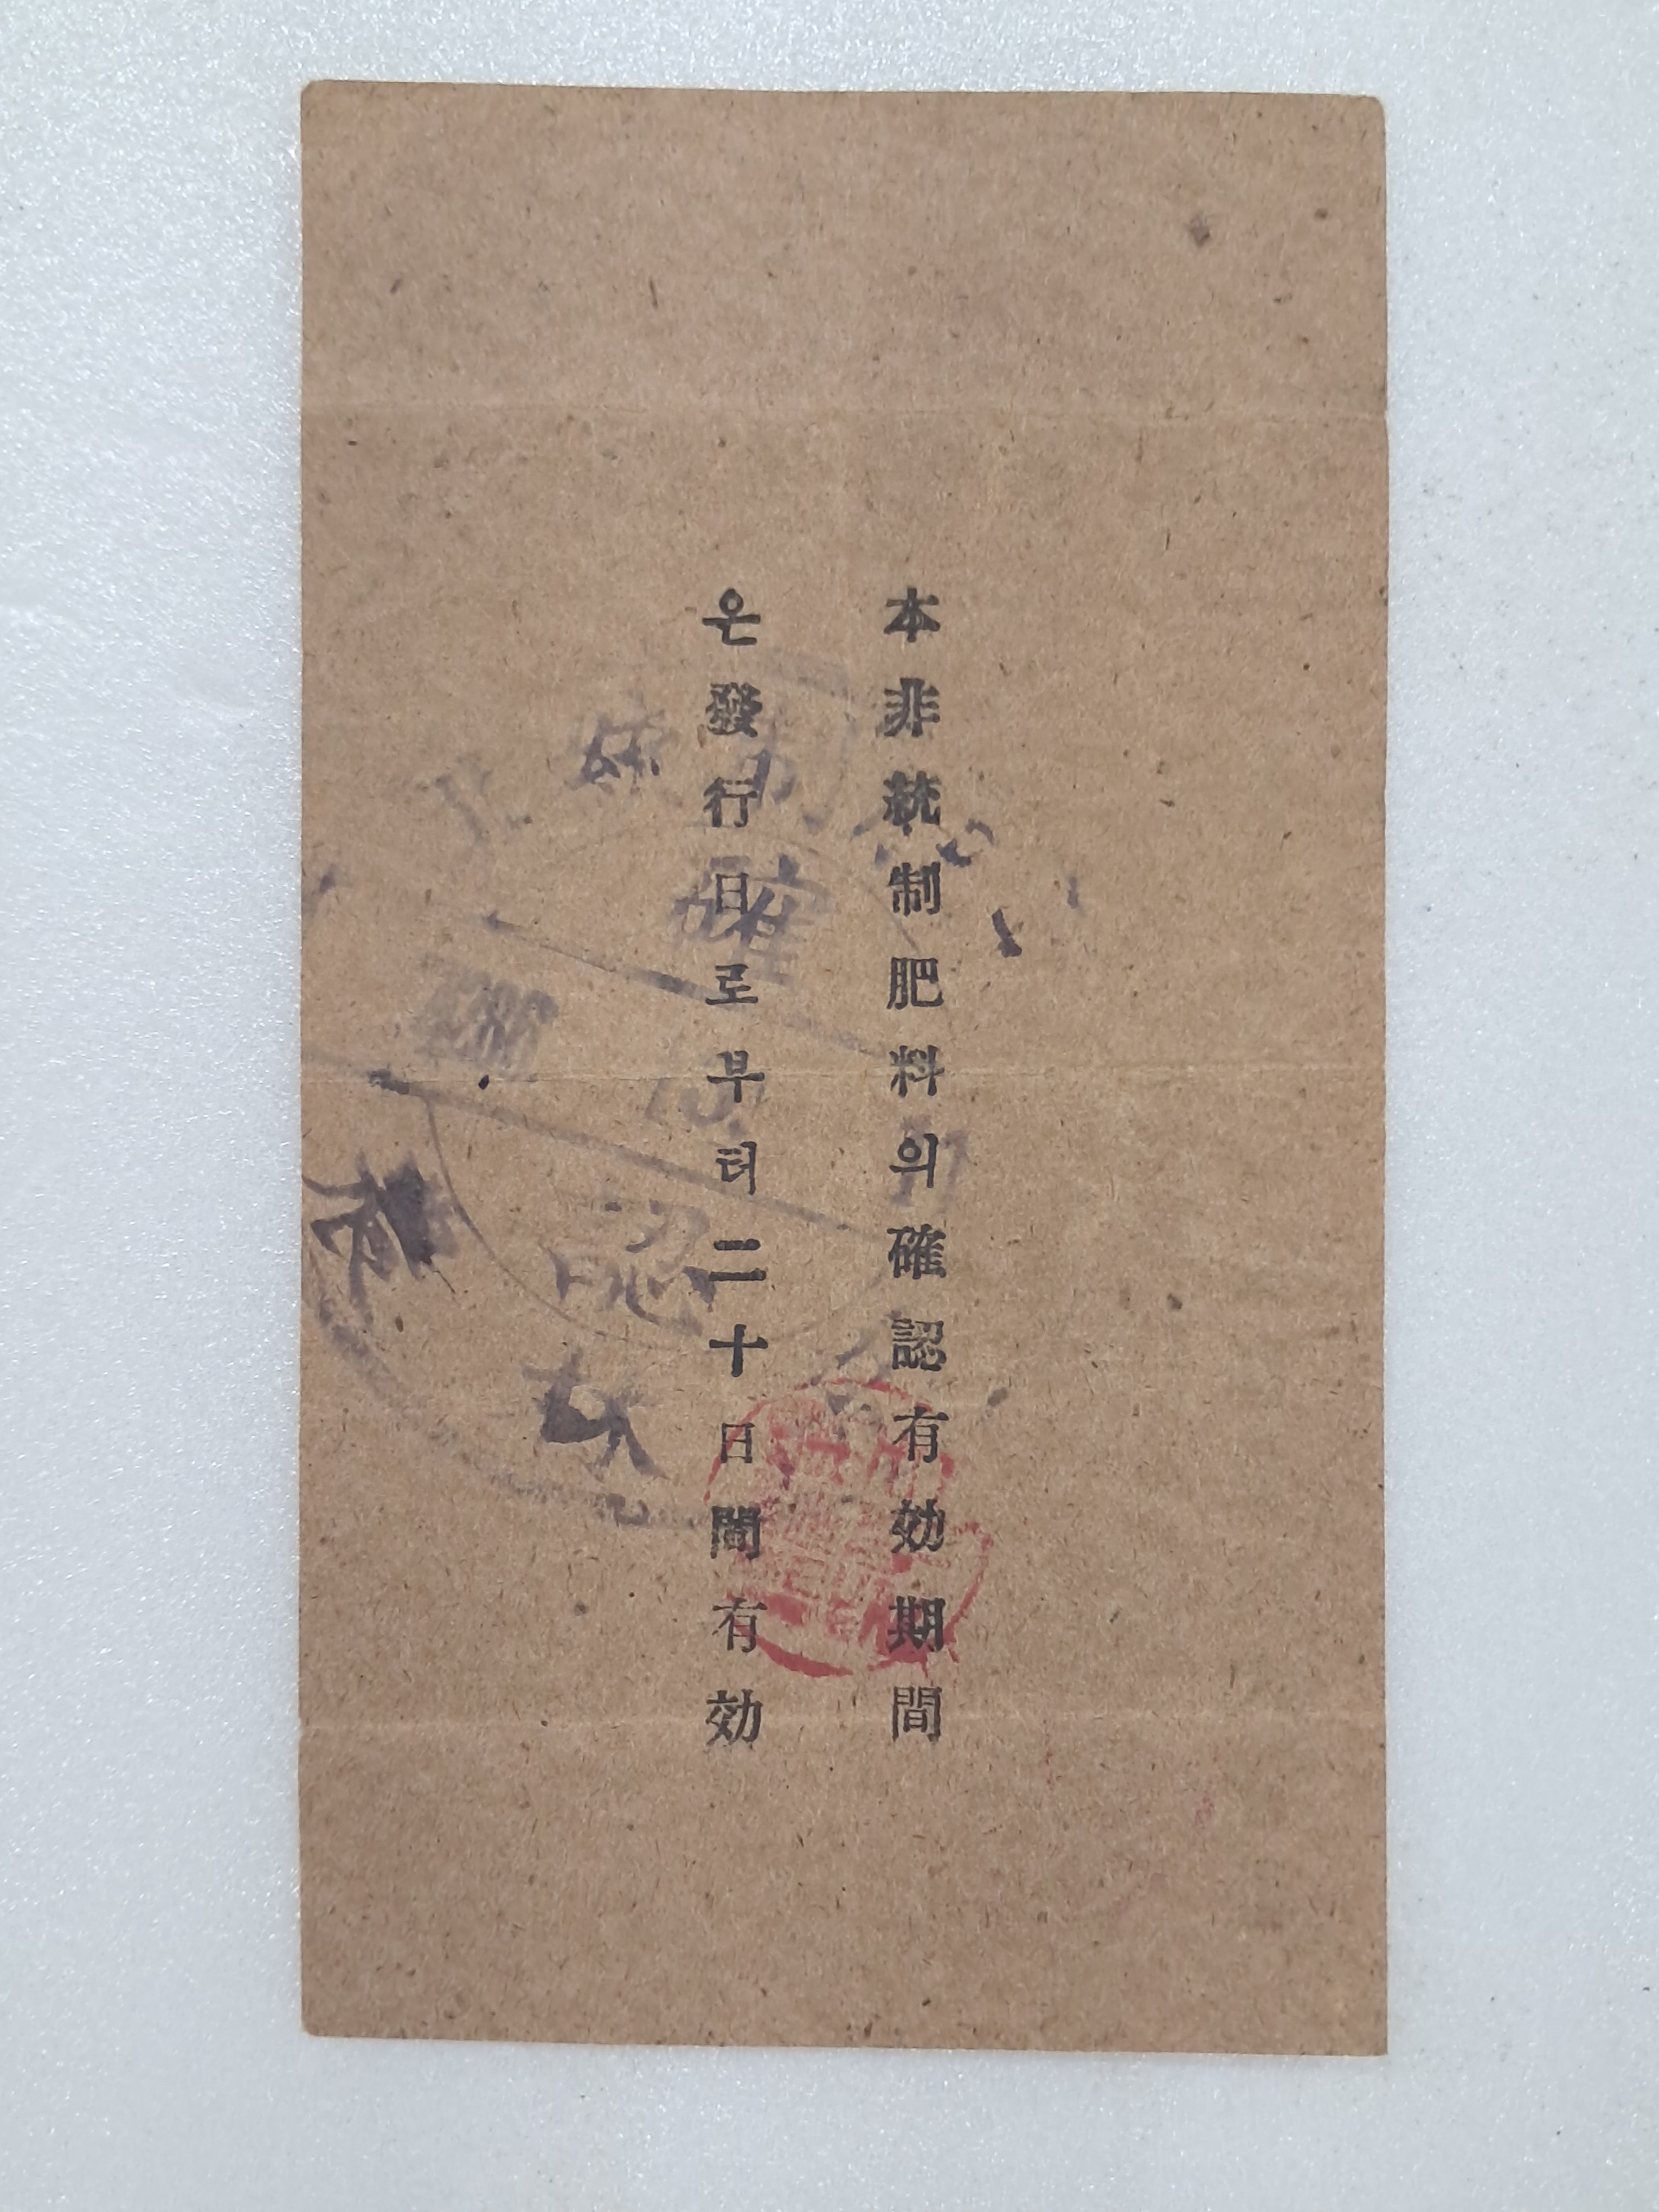 本非統制肥料의確認有効期間
은發行日로부터二十日間有効
確
認